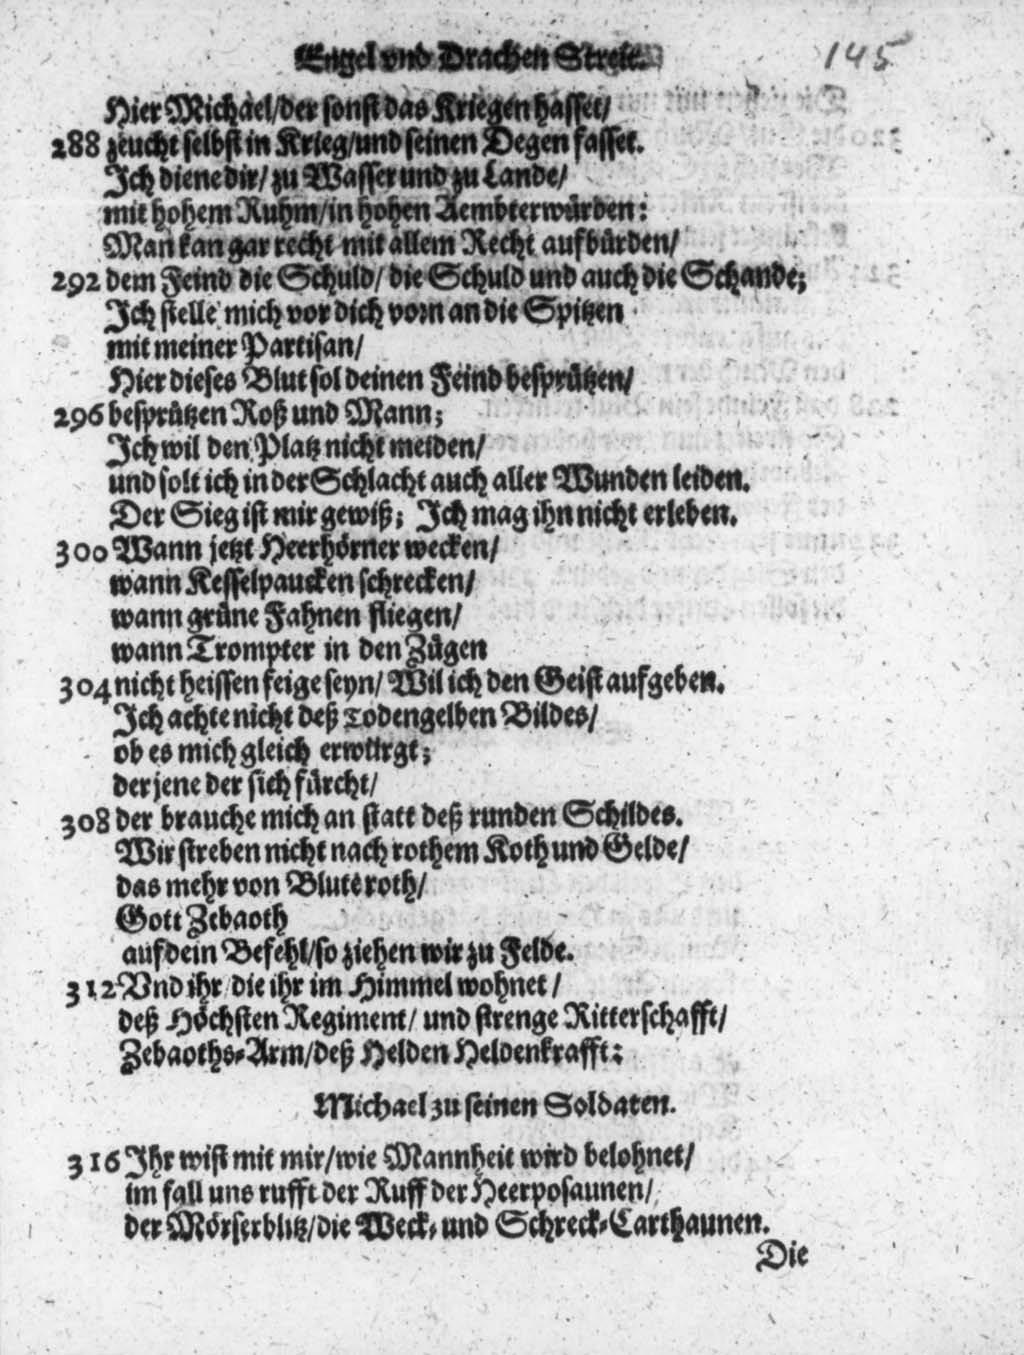 Engel vnd Drachen Streit.
145
Hier Michael/der sonst das Kriegen hasset/
288 zeucht selbst in Krieg/und seinen Degen fasset.
Ich diene dir/ zu Wasser und zu Lande/
mit hohem Ruhm/in hohen Aembter würden:
Man kan gar recht mit allem Recht aufbürden/
292 dem Feind die Schuld/ die Schuld und auch die Schande;
Ich stelle mich vor dich vorn an die Spitzen
mit meiner Partisan/
Hier dieses Blut sol deinen Feind besprützen/
296 besprützen Roß und Mann;
Ich wil den Platz nicht meiden/
und solt ich in der Schlacht auch aller Wunden leiden.
Der Sieg ist mir gewiß; Ich mag ihn nicht erleben.
300 Wann jetzt Heerhörner wecken/
wann Kesselpaucken schrecken/
wann grüne Fahnen fliegen/
wann Trompter in den Zügen
304 nicht heissen feige seyn/ Wil ich den Geist aufgeben.
Ich achte nicht deß Todengelben Bildes/
ob es mich gleich erwürgt;
der jene der sich fürcht/
308 der brauche mich an statt deß runden Schildes.
Wir streben nicht nach rothem Koth und Gelde/
das mehr von Blute roth/
Gott Zebaoth
auf dein Befehl/so ziehen wir zu Felde.
312 Vnd ihr/die ihr im Himmel wohnet/
deß Höchsten Regiment/ und strenge Ritterschafft/
Zebaoths-Arm/deß Helden Heldenkrafft:
Michael zu seinen Soldaten.
316 Ihr wist mit mir/wie Mannheit wird belohnet/
im fall uns rufft der Ruff der Heerposaunen/
der Mörserblitz/die Weck- und Schreck-Carthaunen.
Die